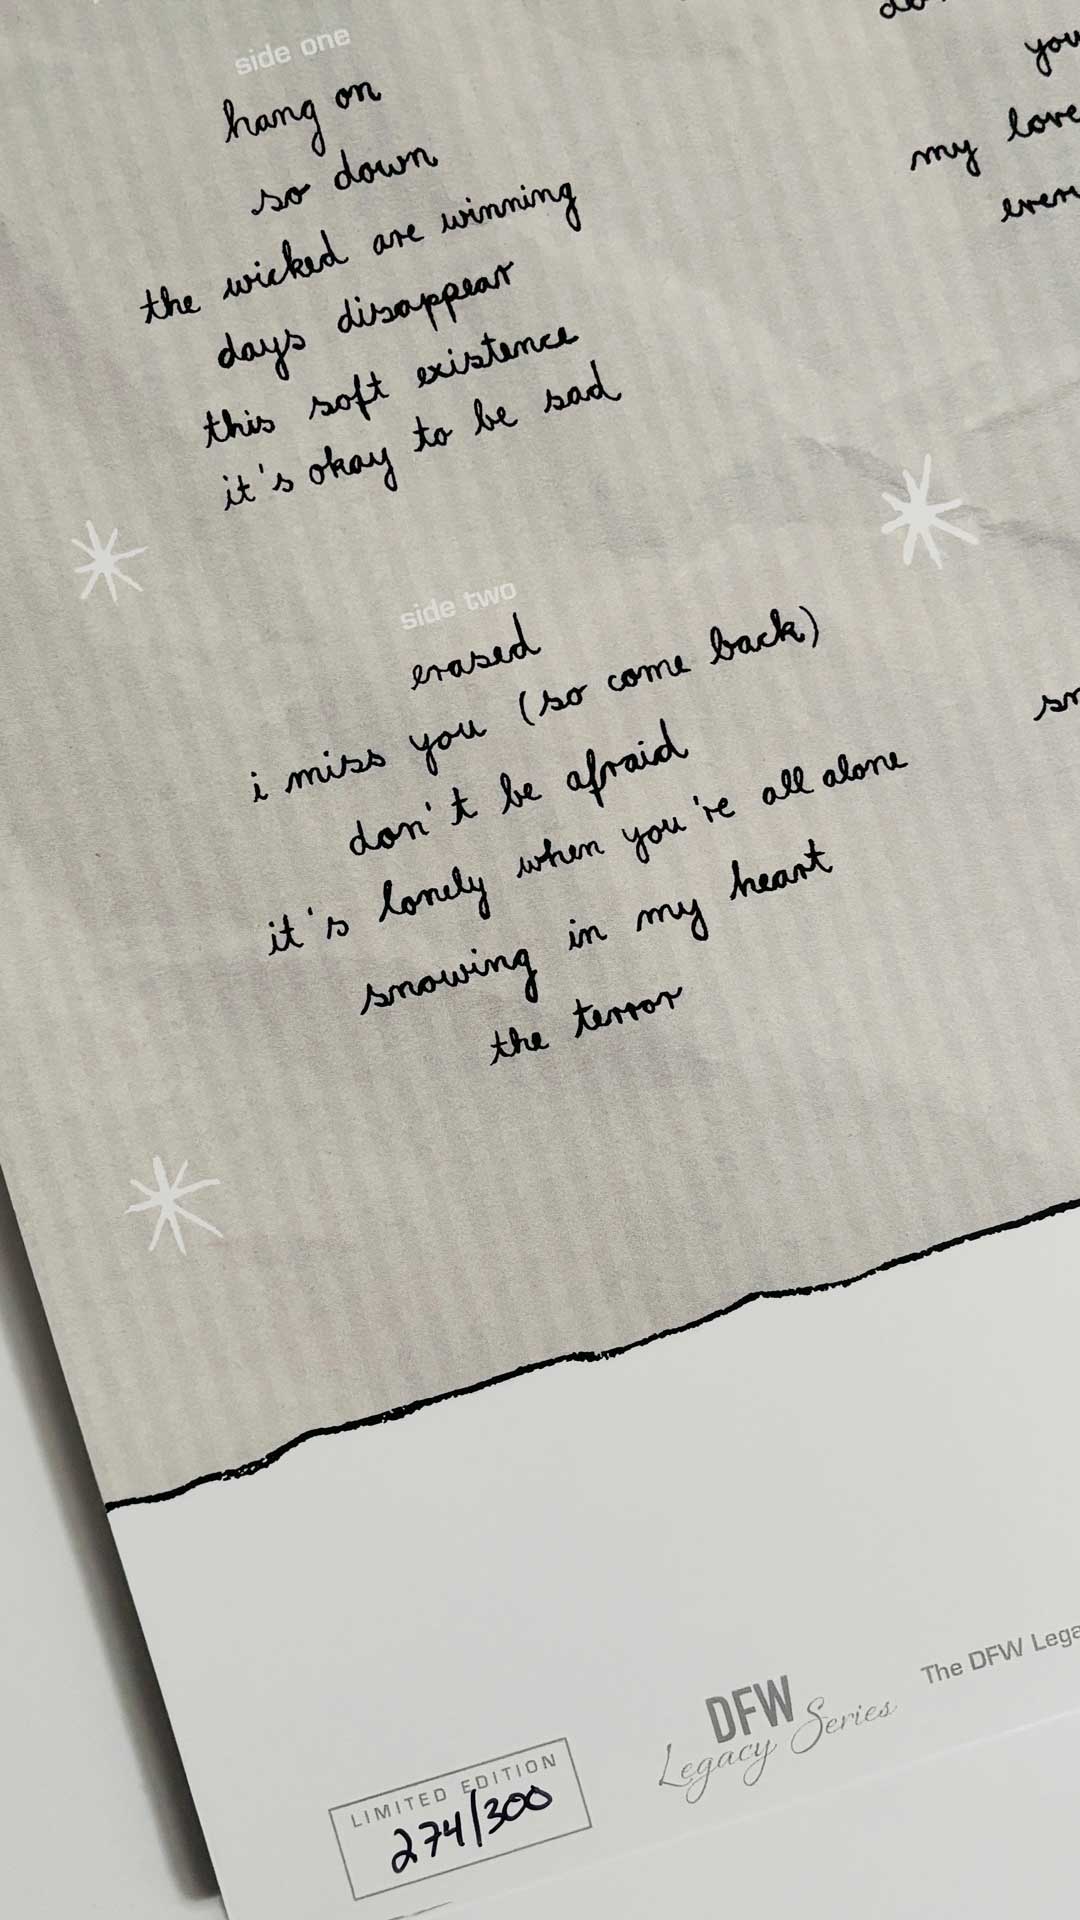 side one
hang on
so down
the wicked are winning
days disappear
this soft existence
it's okay to be sad
my love
side two
erased
i miss you (so come back)
don't be afraid
it's lonely when you're all alone
snowing in my heart
the terror
The DFW
DFW
Legacy Series
LIMITED EDITION
274/300